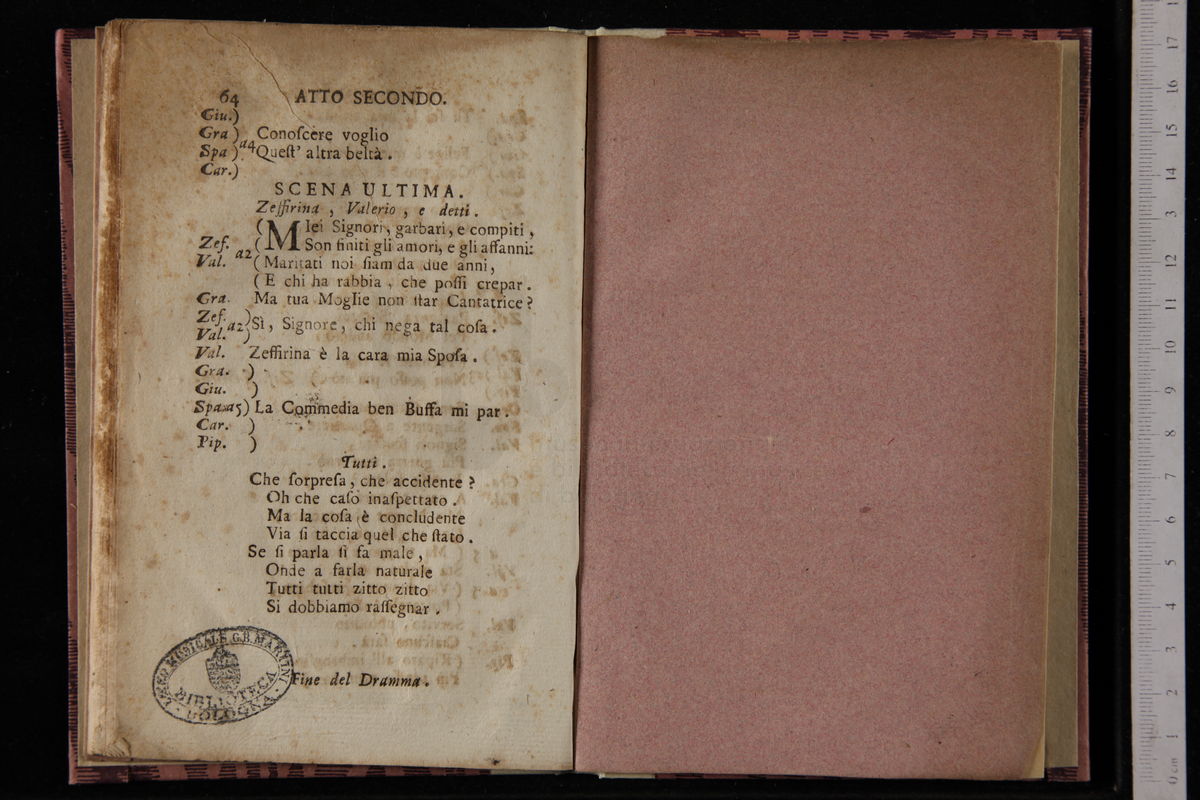 64 ATTO SECONDO.
Giu.)
Gra ) Conoſcere voglio
Spa ) a4 Queſt' altra beltà .
Car.)
SCENA ULTIMA.
Zeffirina , Valerio , e detti .
( MIei Signori, garbari, e compiti ,
Zef. ( Son finiti gli amori, e gli affanni:
Val. a2 ( Maritati noi ſiam da due anni,
( E chi ha rabbia , che poſſi crepar .
Gra. Ma tua Moglie non ſtar Cantatrice?
Zef. )
Val. a2 ) Sì, Signore, chi nega tal coſa .
Val. Zeffirina è la cara mia Spoſa .
Gra. )
Giu. )
Spa. a5) La Commedia ben Buffa mi par .
Car. )
Pip. )
Tutti .
Che ſorpreſa, che accidente ?
Oh che caſo inaſpettato .
Ma la coſa è concludente
Via ſi taccia quel che ſtato .
Se ſi parla ſi fa male ,
Onde a farla naturale
Tutti tutti zitto zitto
Si dobbiamo raſſegnar .
Fine del Dramma .
LICEO MUSICALE G.B. MARTINI
BIBLIOTECA
BOLOGNA